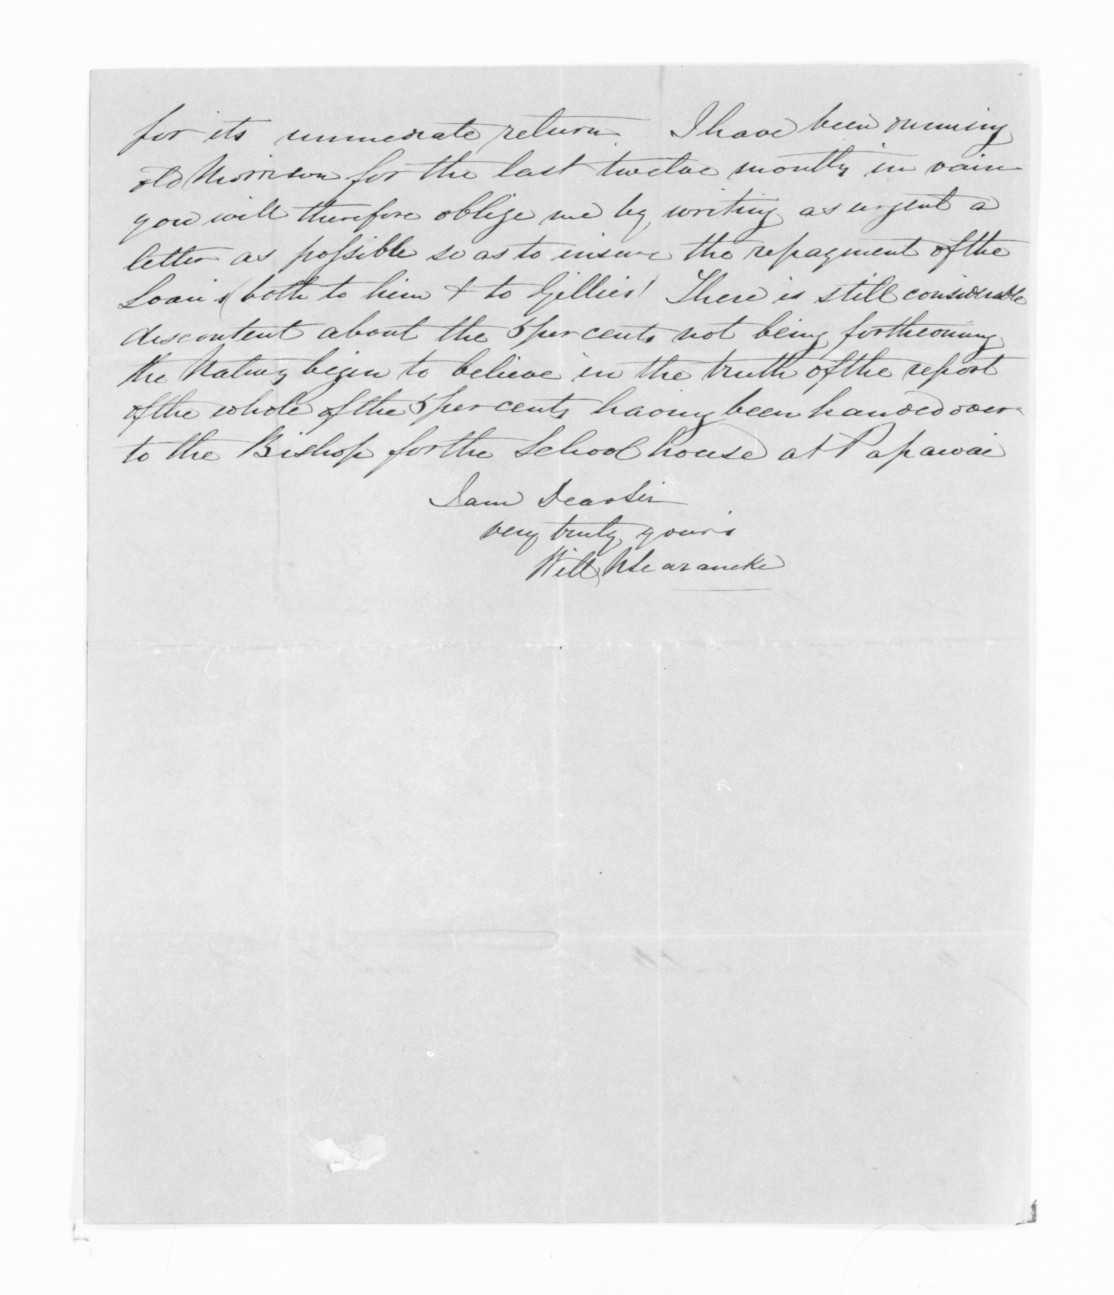 for its immediate return. I have been dunning
old Morrison for the last twelve months in vain
you will therefore oblige me by writing as urgent a
letter as possible so as to insure the repayment of the
Loans (both to him & to Gillies) There is still considerable
discontent about the 5 per cents not being forthcoming
the Natives begin to believe in the truth of the report
of the whole of the 5 per cents having been handed over
to the Bishop for the School house at Papawai
I am Dear Sir
very truly yours
Will Searancke